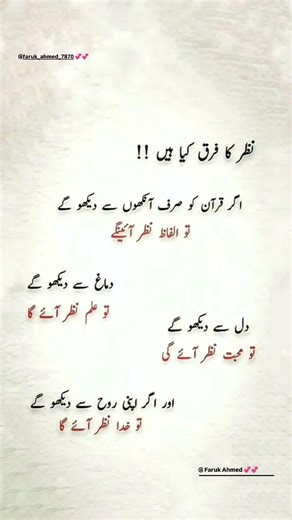 @faruk_ahmed_7870 💞💞
نظر کا فرق کیا ہیں !!
اگر قرآن کو صرف آنکھوں سے دیکھو گے
تو الفاظ نظر آئینگے
دماغ سے دیکھو گے
تو علم نظر آئے گا
دل سے دیکھو گے
تو محبت نظر آئے گی
اور اگر اپنی روح سے دیکھو گے
تو خدا نظر آئے گا
@ Faruk Ahmed 💞💞